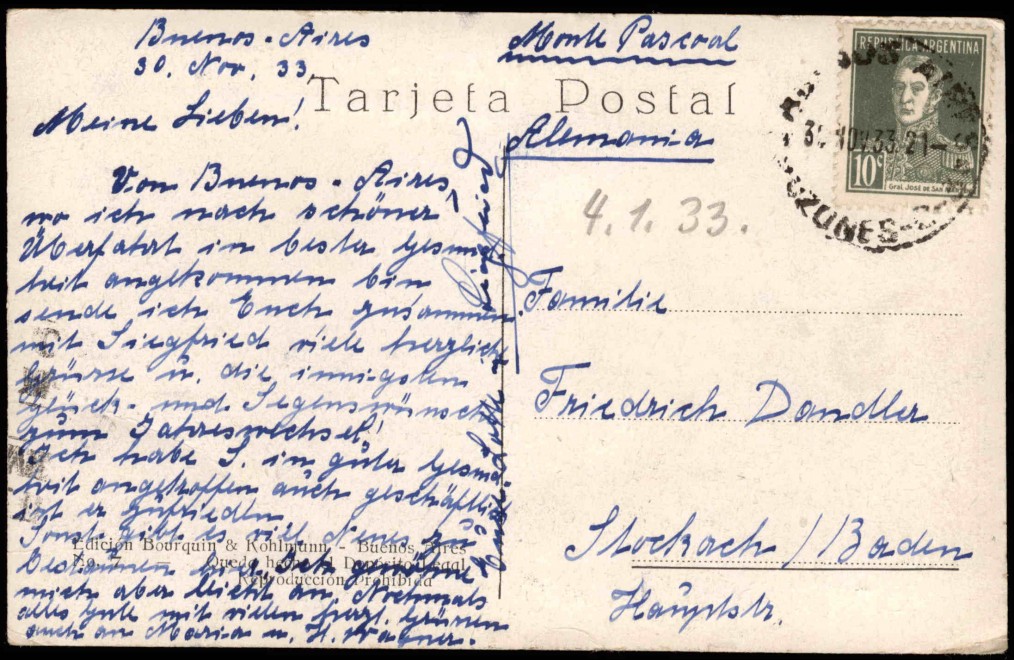 Buenos-Aires
30. Nov. 33
Meine Lieben!
Von Buenos-Aires,
wo ich nach schöner
Überfahrt in bester Gesund
heit angekommen bin
sende ich Euch zusammen
mit Siegfried viele herzliche
Grüsse u. die innigsten
Glück- und Segenswünsche
zum Jahreswechsel!
Ich habe S. in guter Gesund
heit angetroffen auch geschäftlich
ist er zufrieden
Sonst gibt es viel Neues zu
bestaunen
mich aber leicht an. Nochmals
alles Gute mit vielen herzl. Grüssen
auch an Maria u. H. Wagner.
Siegfried
Tarjeta Postal
Edición Bourquin & Kohlmann - Buenos Aires
Queda hecho el Depósito Legal
Reproducción Prohibida
Monte Pascoal
Alemania
4.1.33.
Familie
Friedrich Dandler
Stockach/Baden
Hauptstr.
REPUBLICA ARGENTINA
10c
Gral. José de San
30 NOV. 33. 21-
BUZONES-